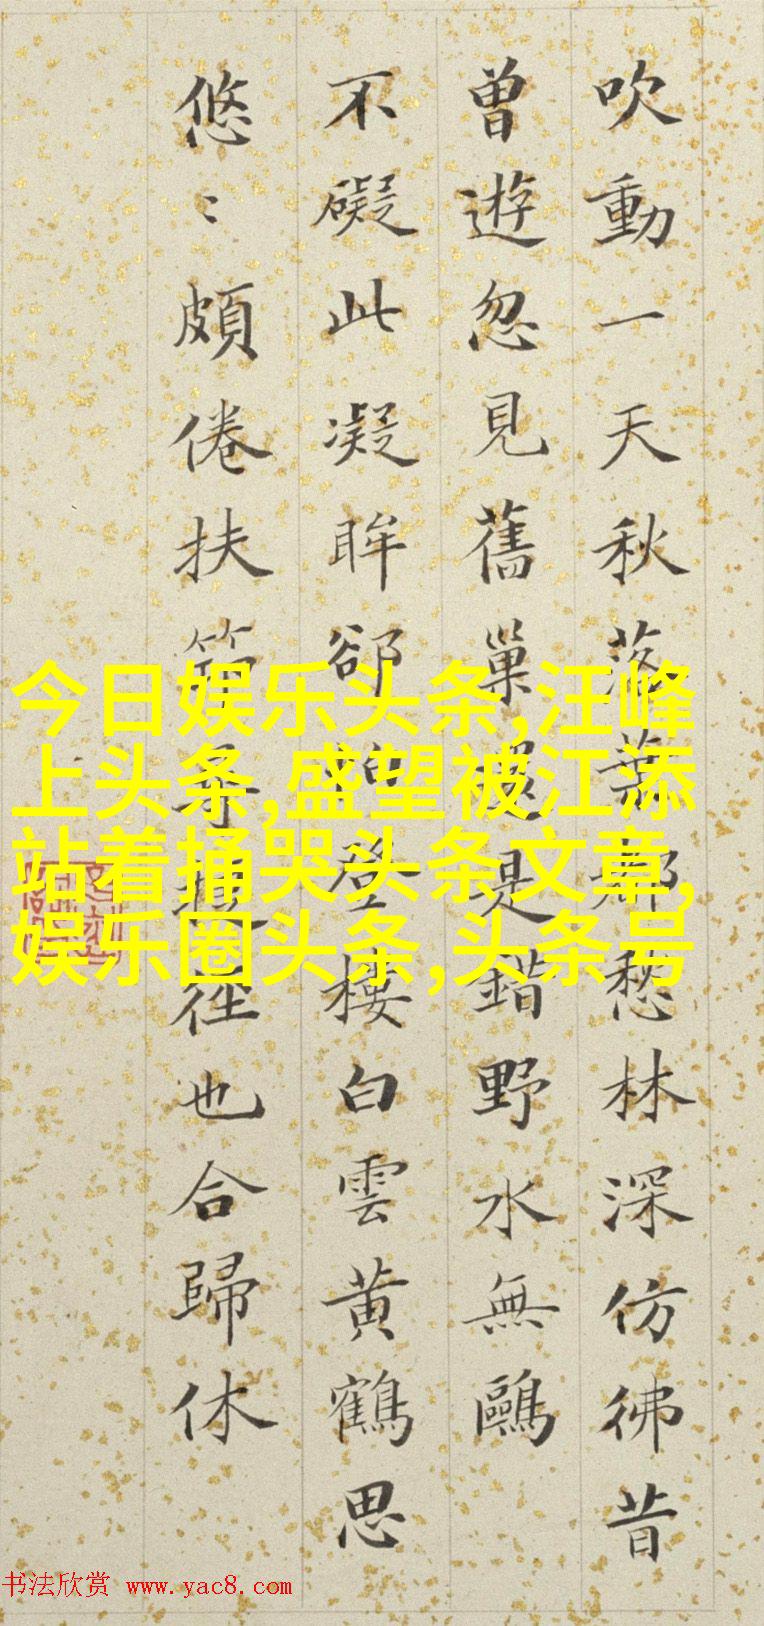 吹動一天秋落葉都愁林深仿彿昔
曾遊忽見舊巢還是錯野水無鷗
不礙此凝眸郤怕登樓白雲黄鶴思
悠〻頗倦扶筇尋徑也合歸休
今日娱乐头条,汪峰
上头条,盛望被江添
站着捅哭头条文章,
娱乐圈头条,头条号
书法欣赏 www.yac8.com